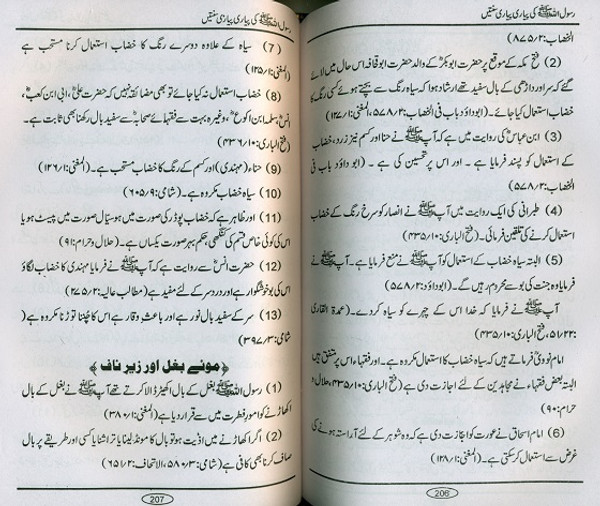 رسول اللہ ﷺ کی پیاری پیاری سنتیں
الخضاب: ۸۷۵/۲)
(2) فتح مکہ کے موقع پر حضرت ابوبکرؓ کے والد حضرت ابو قافہ اس حال میں لائے
گئے کہ سر اور داڑھی کے بال سفید تھے ارشاد ہوا کہ سیاہ رنگ سے بچتے ہوئے کسی رنگ کا
خضاب استعمال کیا جائے۔ (ابوداؤد باب فی الخضاب: ۵۷۸/۲، المغنی: ۱۲۷/۱)
(3) ابن عباسؓ کی روایت میں ہے کہ آپ ﷺ نے حنا اور کسم نیز زرد، خضاب
کے استعمال کو پسند فرمایا ہے ۔ اور اس پر تحسین کی ہے ۔ (ابوداؤد باب فی
الخضاب: ۵۷۸/۲)
(4) طبرانی کی ایک روایت میں آپ ﷺ نے انصار کو سرخ رنگ کے خضاب
استعمال کرنے کی تلقین فرمائی۔ (فتح الباری: ۴۳۵/۱۰)
(5) البتہ سیاہ خضاب کے استعمال کو آپ ﷺ نے منع فرمایا ہے۔ آپ ﷺ نے
فرمایا وہ جنت کی بو سے محروم رہیں گے۔ (ابوداؤد: ۵۷۸/۲)
آپ ﷺ نے فرمایا کہ خدا اس کے چہرے کو سیاہ کردے۔ (عمدۃ القاری
۵۱/۲۲، فتح الباری: ۴۳۵/۱۰)
امام نوویؒ فرماتے ہیں کہ سیاہ خضاب کا استعمال مکروہ ہے۔ اور فقہاء اس پر متفق ہیں
البتہ بعض فقہاء نے مجاہدین کے لئے اجازت دی ہے (فتح الباری: ۴۳۵/۱۰، حلال و
حرام: ۹۰)
(6) امام اسحاق نے عورت کو اجازت دی ہے کہ وہ شوہر کے لئے آراستہ ہونے کی
غرض سے استعمال کرسکتی ہے۔ (المغنی: ۱۲۸/۱)
206
رسول اللہ ﷺ کی پیاری پیاری سنتیں
(7) سیاہ کے علاوہ دوسرے رنگ کا خضاب استعمال کرنا مستحب ہے
(المغنی: ۱۲۵/۱)
(8) خضاب استعمال نہ کیا جائے تو بھی مضائقہ نہیں کہ حضرت علیؓ، ابی ابن کعبؓ،
انسؓ، سلمہ ابن اکوعؓ، وغیرہ بہت سے فقہائے صحابہؓ سے سفید بال رکھنا بھی ثابت ہے۔
(فتح الباری: ۴۳۶/۱۰)
(9) حناء (مہندی) اور کسم کے رنگ کا خضاب مستحب ہے۔ (المغنی: ۱۲۶/۱)
(10) سیاہ خضاب مکروہ ہے۔ (شامی: ۶۰۵/۹)
(11) اور ظاہر ہے کہ خضاب پوڈر کی صورت میں ہو سیّال صورت میں پیسٹ ہو یا
اس کی کوئی خاص قسم کی کنگھی، حکم بہر صورت یکساں ہے۔ (حلال و حرام: ۹۱)
(12) حضرت انسؓ سے روایت ہے کہ آپ ﷺ نے فرمایا مہندی کا خضاب لگاؤ
اس کی بو خوشگوار ہے اور درد سر کے لئے مفید ہے (مطالب عالیہ: ۲۷۵/۲)
(13) سر کے سفید بال نور ہے اور باعث وقار ہے اس کا چننا توڑنا مکروہ ہے (
شامی: ۳۹۷/۳)
﴿موئے بغل اور زیر ناف﴾
(1) رسول اللہ ﷺ بغل کے بال اکھیڑ ڈالا کرتے تھے آپ ﷺ نے بغل کے بال
اکھاڑنے کو امور فطرت میں سے قرار دیا ہے (المغنی: ۳۸۰/۱)
(2) اگر اکھاڑنے میں اذیت ہو تو بال کا مونڈ لینا یا تراشنا یا کسی اور طریقے پر بال
صاف کرنا بھی کافی ہے (شامی: ۵۸۰/۳، الاتحاف: ۶۵۱/۲)
207